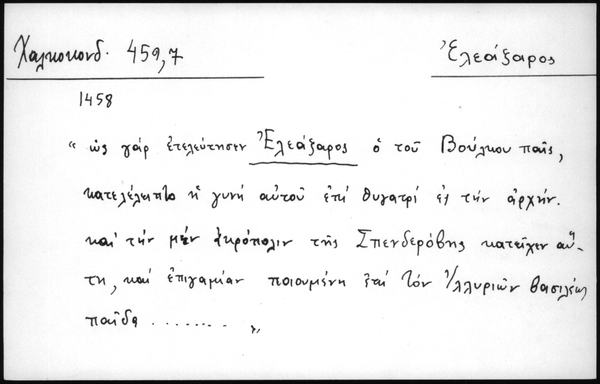 Χαλκοκονδ. 459,7
Ἐλεάξαρος
1458
“ ὡς γάρ ἐτελεύτησεν Ἐλεάξαρος ὁ τοῦ Βούλκου παῖς,
κατελέλειπτο ἡ γυνή αὐτοῦ ἐπί θυγατρί ἐς τήν ἀρχήν.
καί τήν μέν ἀκρόπολιν τῆς Σπενδερόβης κατεῖχεν αὕ-
τη, καί ἐπιγαμίαν ποιουμένη ἐπί τόν Ἰλλυριῶν βασιλέως
παῖδα ........ „